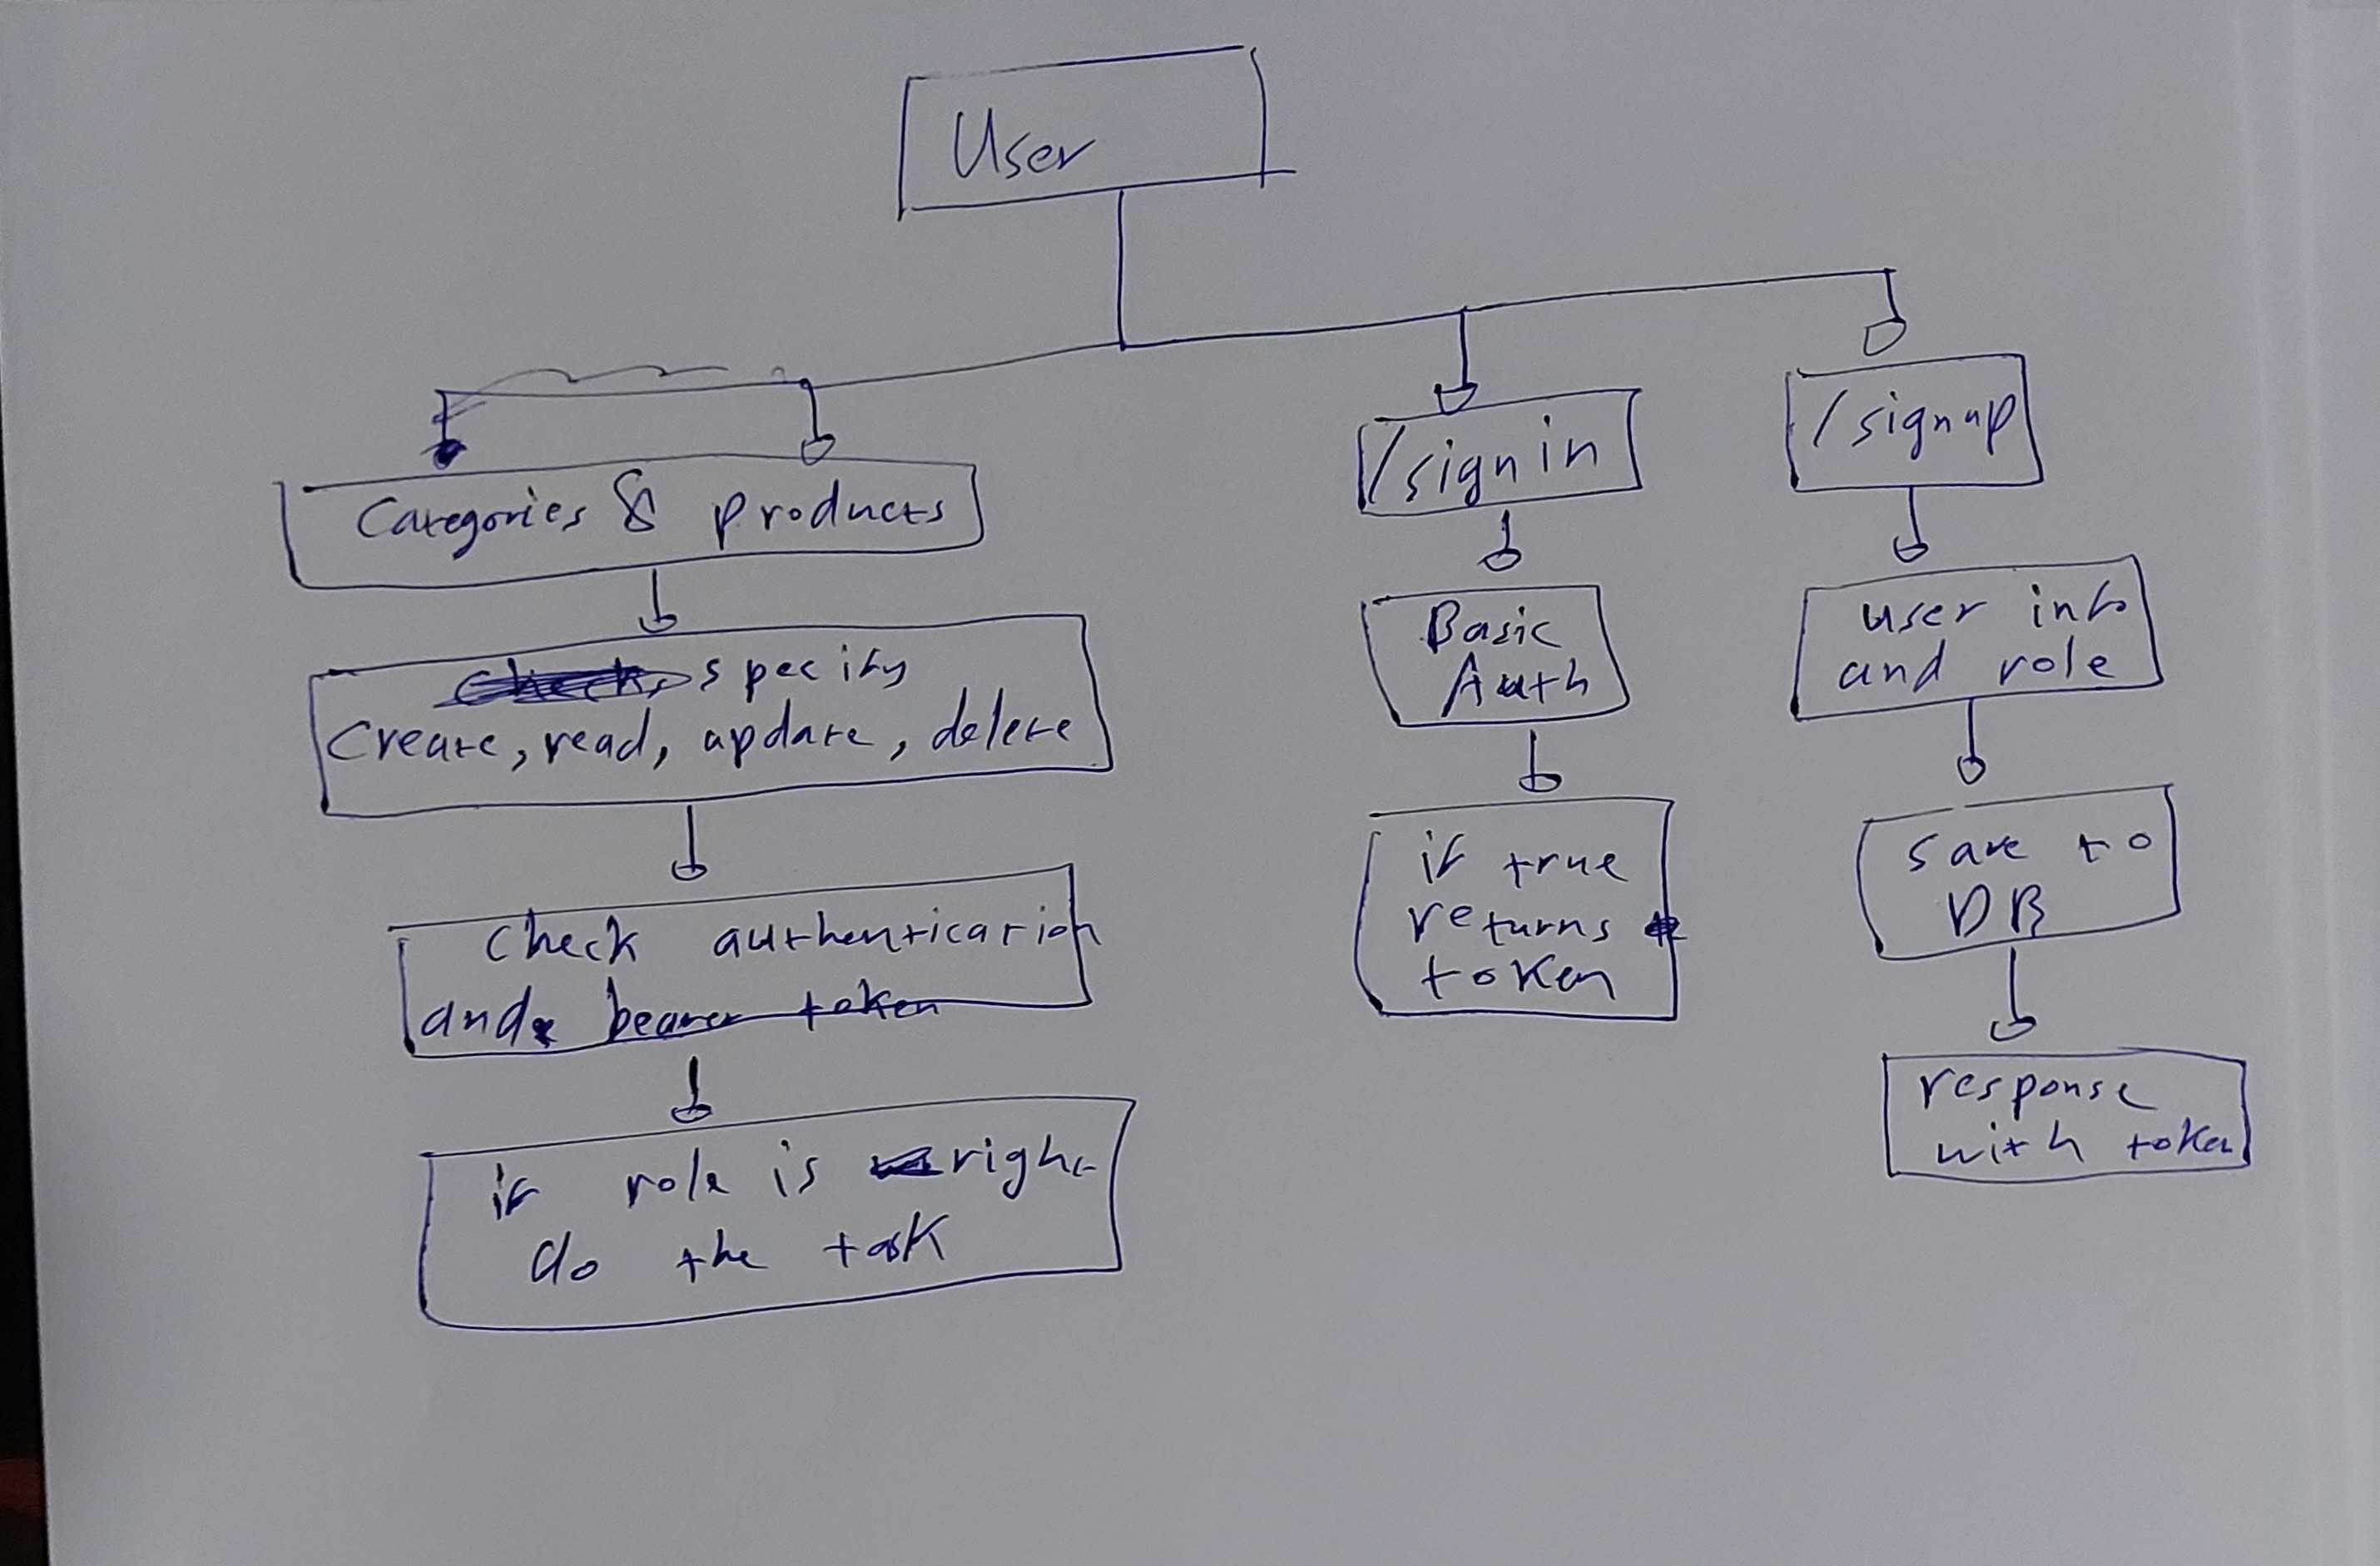 User
Categories & products
specify
create, read, update, delete
check authentication
and bearer token
if role is right
do the task
/signin
Basic
Auth
if true
returns
token
/signup
user info
and role
save to
DB
response
with token